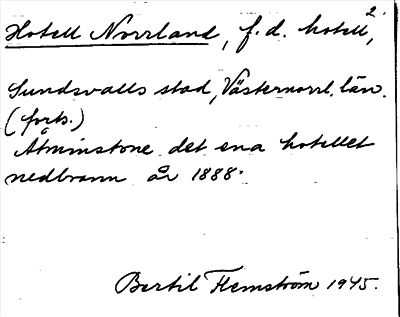 Hotell Norrland, f.d. hotell, 2.
Sundsvalls stad, Västernorrl. län.
(forts.)
Åtminstone det ena hotellet
nedbrann år 1888.
Bertil Flemström 1945.